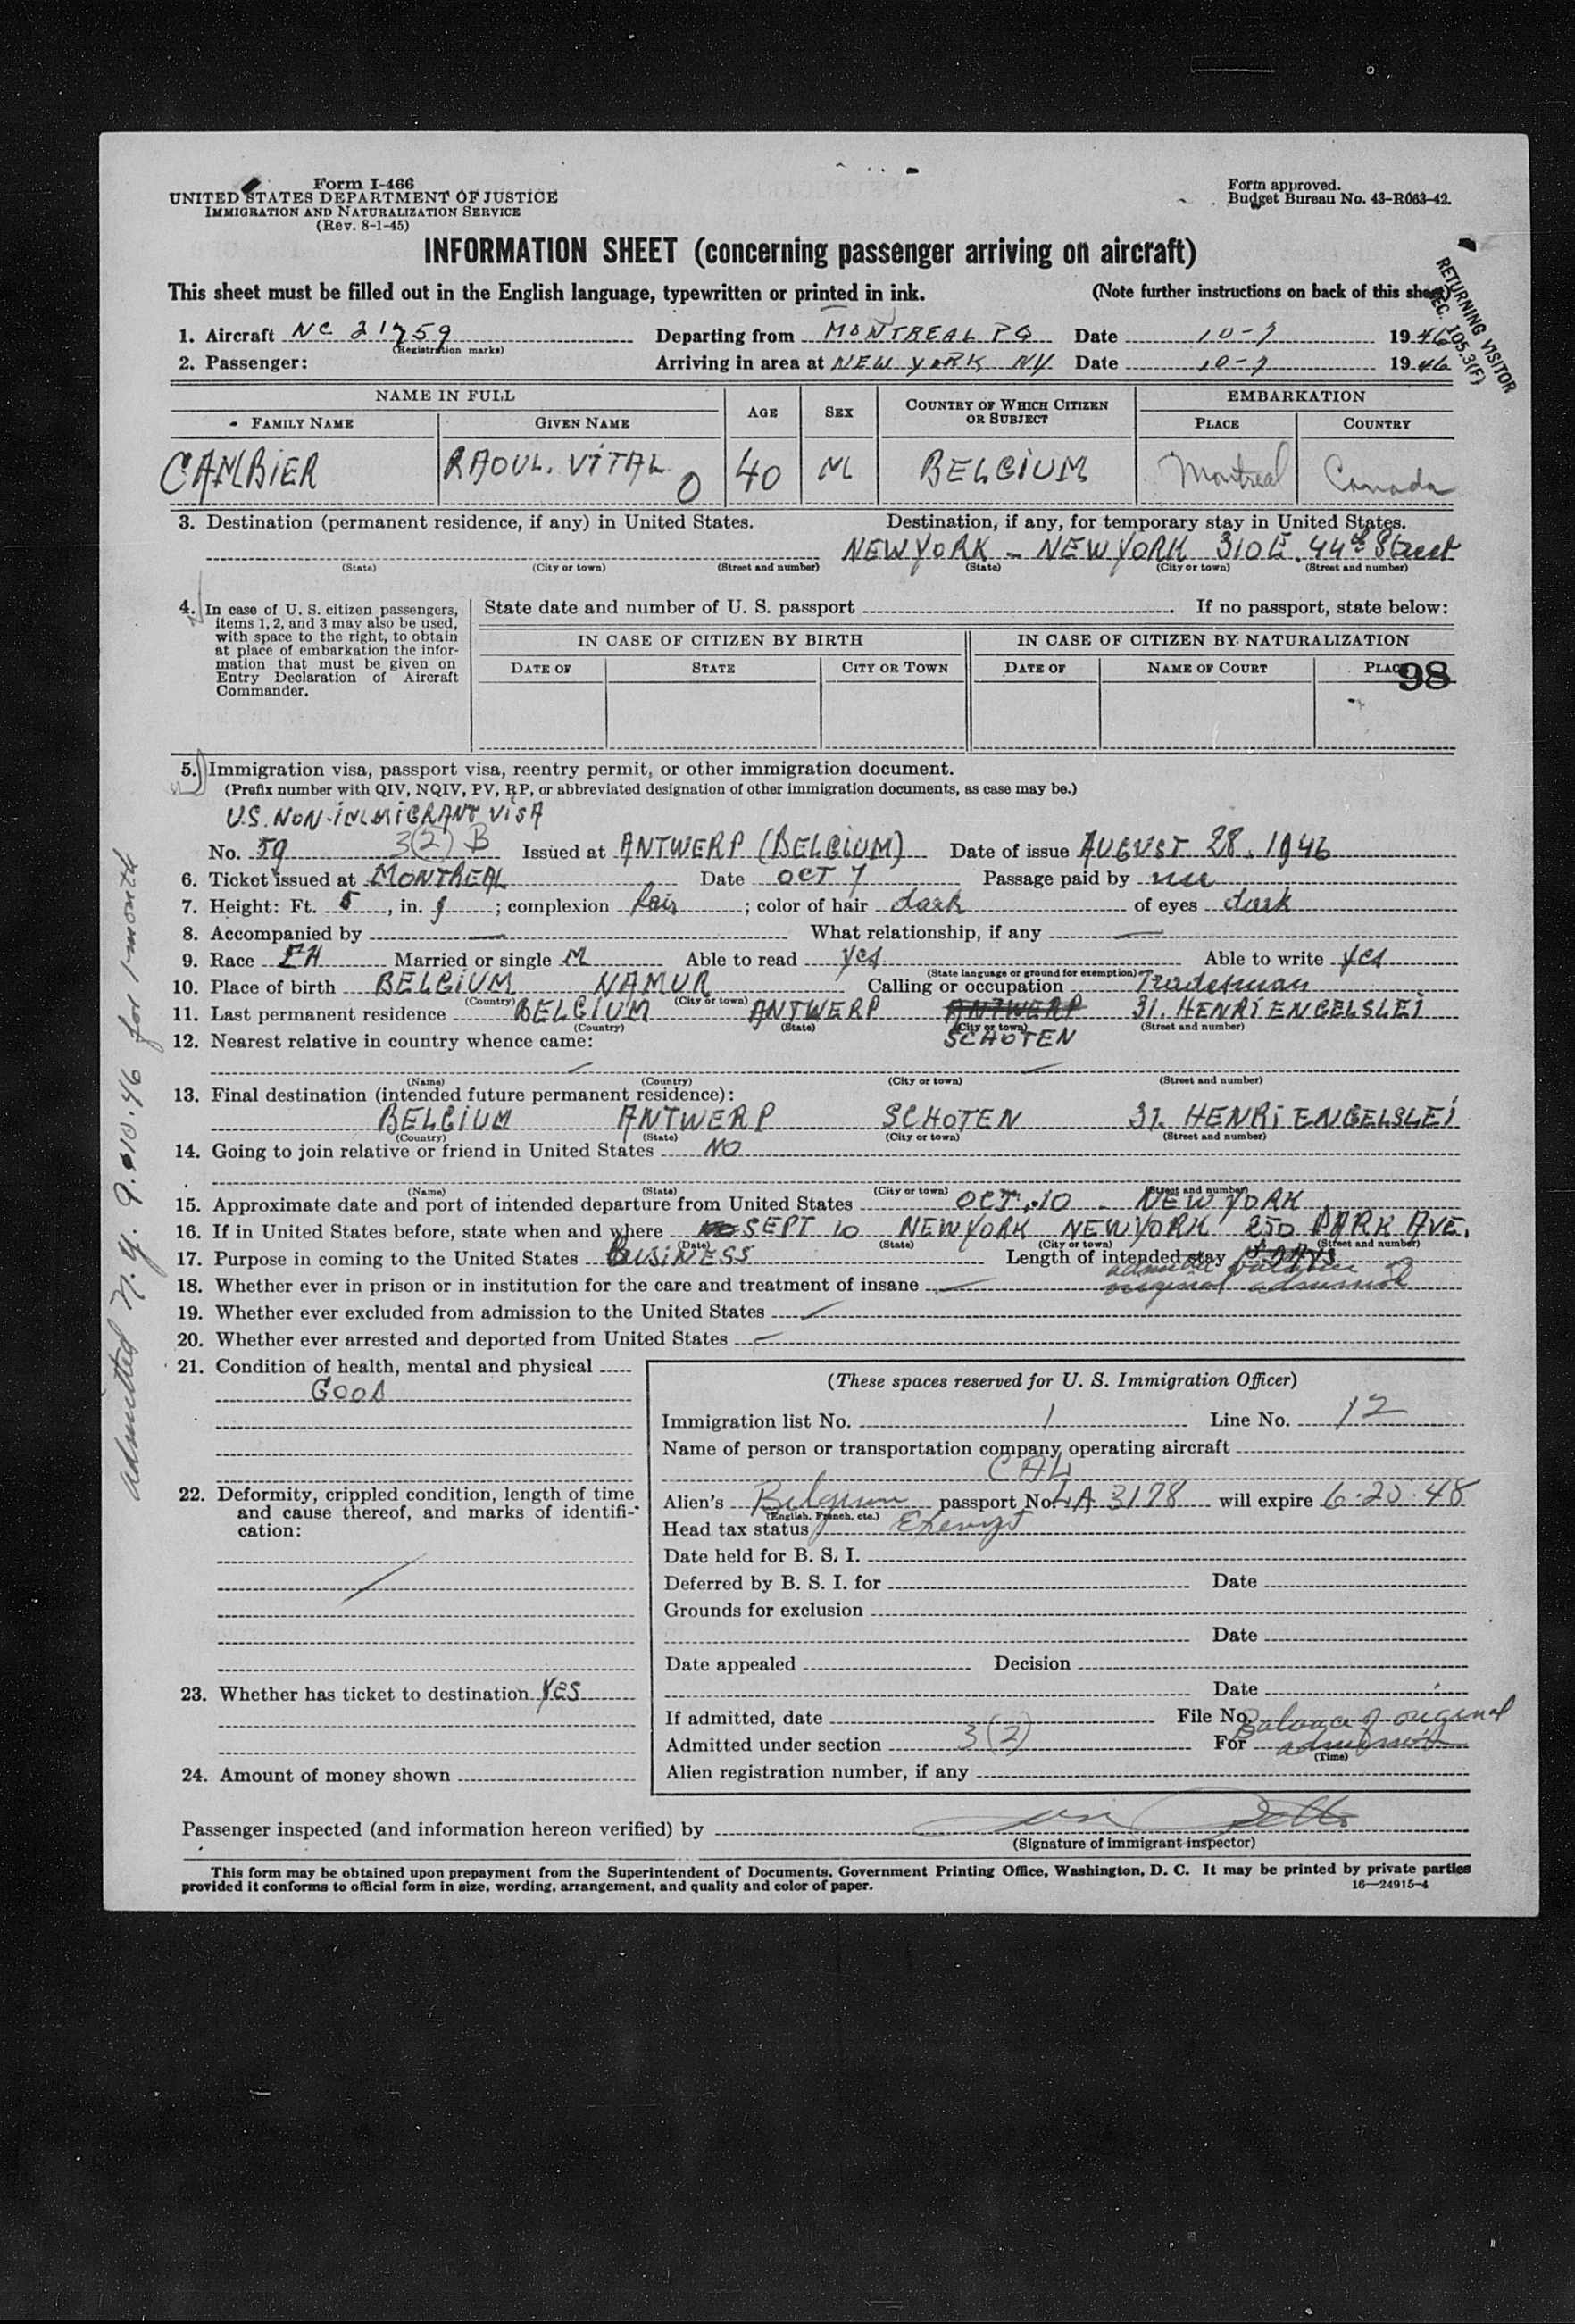 Form I-466
UNITED STATES DEPARTMENT OF JUSTICE
IMMIGRATION AND NATURALIZATION SERVICE
(Rev. 8-1-45)
Form approved.
Budget Bureau No. 43-R063-42.
INFORMATION SHEET (concerning passenger arriving on aircraft)
This sheet must be filled out in the English language, typewritten or printed in ink. (Note further instructions on back of this sheet)
RETURNING VISITOR
SEC. 105.3(F)
1. Aircraft NC 21759 Departing from MONTREAL PQ Date 10-7 1946
(Registration marks)
2. Passenger: Arriving in area at NEW YORK NY Date 10-7 1946
NAME IN FULL AGE SEX COUNTRY OF WHICH CITIZEN OR SUBJECT EMBARKATION
FAMILY NAME GIVEN NAME PLACE COUNTRY
CAMBIER RAOUL. VITAL O 40 M BELGIUM Montreal Canada
3. Destination (permanent residence, if any) in United States. Destination, if any, for temporary stay in United States.
NEW YORK - NEW YORK 310 E. 44th Street
(State) (City or town) (Street and number) (State) (City or town) (Street and number)
4. In case of U. S. citizen passengers, items 1, 2, and 3 may also be used, with space to the right, to obtain at place of embarkation the information that must be given on Entry Declaration of Aircraft Commander.
State date and number of U. S. passport If no passport, state below:
IN CASE OF CITIZEN BY BIRTH IN CASE OF CITIZEN BY NATURALIZATION
DATE OF STATE CITY OR TOWN DATE OF NAME OF COURT PLACE
98
5. Immigration visa, passport visa, reentry permit, or other immigration document.
(Prefix number with QIV, NQIV, PV, RP, or abbreviated designation of other immigration documents, as case may be.)
U.S. NON-IMMIGRANT VISA
No. 59 3(2) B Issued at ANTWERP (BELGIUM) Date of issue AUGUST 28. 1946
6. Ticket issued at MONTREAL Date OCT 7 Passage paid by me
7. Height: Ft. 5, in. 9; complexion fair; color of hair dark of eyes dark
8. Accompanied by — What relationship, if any —
9. Race Married or single M Able to read yes Able to write yes
(State language or ground for exemption)
10. Place of birth BELGIUM NAMUR Calling or occupation Tradesman
(Country) (City or town)
11. Last permanent residence BELGIUM ANTWERP ANTWERP 31. HENRI ENGELSLEI
(Country) (State) (City or town) (Street and number)
SCHOTEN
12. Nearest relative in country whence came:
(Name) (Country) (City or town) (Street and number)
13. Final destination (intended future permanent residence):
BELGIUM ANTWERP SCHOTEN 31. HENRI ENGELSLEI
(Country) (State) (City or town) (Street and number)
14. Going to join relative or friend in United States NO
(Name) (State) (City or town) (Street and number)
15. Approximate date and port of intended departure from United States OCT. 10 - NEW YORK
16. If in United States before, state when and where SEPT 10 NEW YORK NEW YORK 250 PARK AVE.
(Date) (State) (City or town) (Street and number)
17. Purpose in coming to the United States BUSINESS Length of intended stay DAYS
admitted balance original admission
18. Whether ever in prison or in institution for the care and treatment of insane —
19. Whether ever excluded from admission to the United States —
20. Whether ever arrested and deported from United States —
21. Condition of health, mental and physical
GOOD
22. Deformity, crippled condition, length of time and cause thereof, and marks of identification:
23. Whether has ticket to destination YES
24. Amount of money shown
(These spaces reserved for U. S. Immigration Officer)
Immigration list No. 1 Line No. 12
Name of person or transportation company operating aircraft
CAL
Alien's Belgium passport No. LA 3178 will expire 6-25-48
(English, French, etc.)
Head tax status Exempt
Date held for B. S. I.
Deferred by B. S. I. for Date
Grounds for exclusion
Date
Date appealed Decision
Date
If admitted, date File No.
Admitted under section 3(2) For Balance of original admission
(Time)
Alien registration number, if any
Passenger inspected (and information hereon verified) by
(Signature of immigrant inspector)
This form may be obtained upon prepayment from the Superintendent of Documents, Government Printing Office, Washington, D. C. It may be printed by private parties
provided it conforms to official form in size, wording, arrangement, and quality and color of paper. 16—24915-4
admitted N.Y. 9.10.46 for 1 month